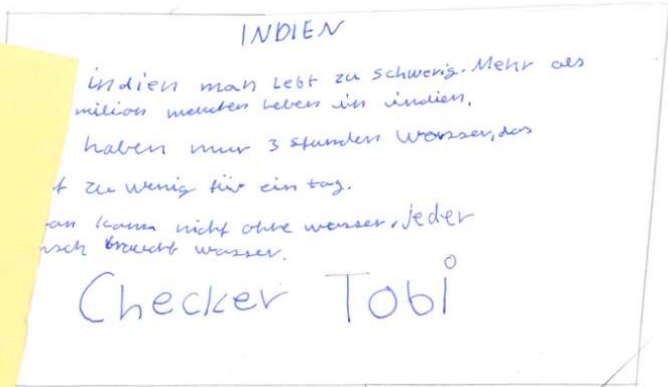 INDIEN
indien man lebt zu schwerig. Mehr als
milion menchen leben in indien.
haben nur 3 stunden wasser, das
t zu wenig für ein tag.
an kann nicht ohne wasser, jeder
nsch braucht wasser.
Checker Tobi